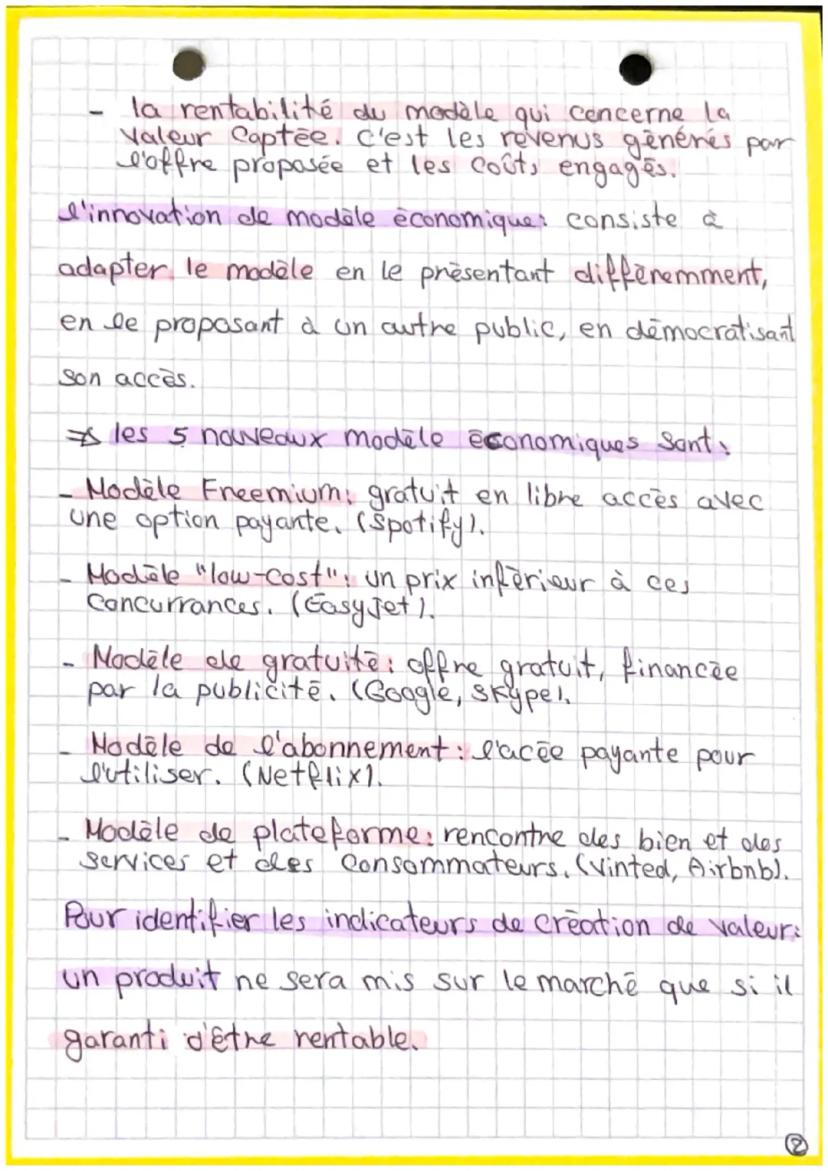 - la rentabilité du modèle qui concerne la
valeur Captée. C'est les revenus générés par
l'offre proposée et les coûts engagés.
l'innovation de modèle économique: consiste à
adapter le modèle en le présentant différemment,
en le proposant à un autre public, en démocratisant
son accès.
⇒ les 5 nouveaux modèle économiques sont:
- Modèle Freemium: gratuit en libre accès avec
une option payante. (Spotify).
- Modèle "low-cost": un prix inférieur à ces
concurrances. (EasyJet).
- Modèle de gratuité: offre gratuit, financée
par la publicité. (Google, Skype).
- Modèle de l'abonnement: l'acée payante pour
l'utiliser. (Netflix).
- Modèle de plateforme: rencontre des bien et des
services et des consommateurs. (Vinted, Airbnb).
Pour identifier les indicateurs de création de valeur:
un produit ne sera mis sur le marché que si il
garanti d'être rentable.
2